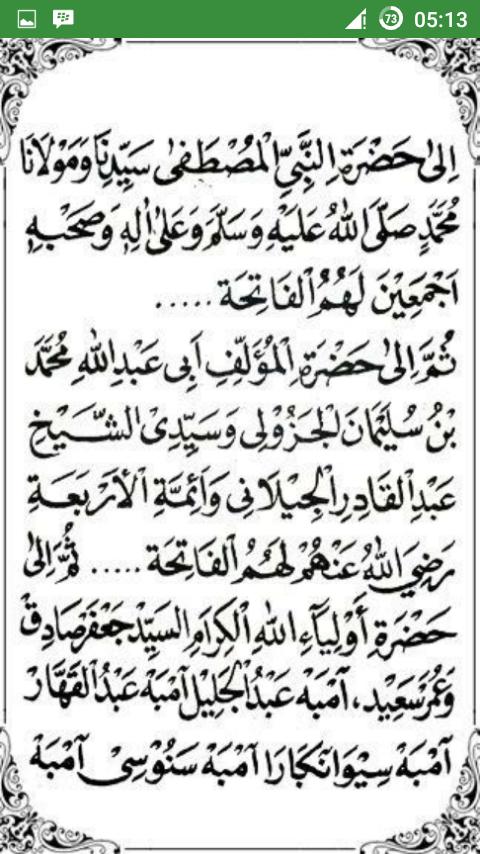 73 05:13
اِلٰى حَضْرَةِ النَّبِيِّ الْمُصْطَفٰى سَيِّدِنَا وَمَوْلَانَا
مُحَمَّدٍ صَلَّى اللهُ عَلَيْهِ وَسَلَّمَ وَعَلٰى اٰلِهٖ وَصَحْبِهٖ
اَجْمَعِيْنَ لَهُمُ الْفَاتِحَةَ .....
ثُمَّ اِلٰى حَضْرَةِ الْمُؤَلِّفِ اَبِى عَبْدِ اللهِ مُحَمَّدَ
بْنُ سُلَيْمَانَ الْجَزُوْلِى وَسَيِّدِى الشَّيْخِ
عَبْدِ الْقَادِرِ الْجِيْلَانِى وَاَئِمَّةِ الْاَرْبَعَةِ
رَضِيَ اللهُ عَنْهُمْ لَهُمُ الْفَاتِحَةَ ..... ثُمَّ اِلٰى
حَضْرَةِ أَوْلِيَآءِ اللهِ الْكِرَامِ السَيِّدْ جَعْفَرْ صَادِقْ
وَعُمَرْ سَعِيْد، آمْبَهْ عَبْدُ الْجَلِيْل آمْبَهْ عَبْدُ الْقَهَّارْ
آمْبَهْ سِيْوَانَكَارَا آمْبَهْ سَنُوْسِىْ آمْبَهْ